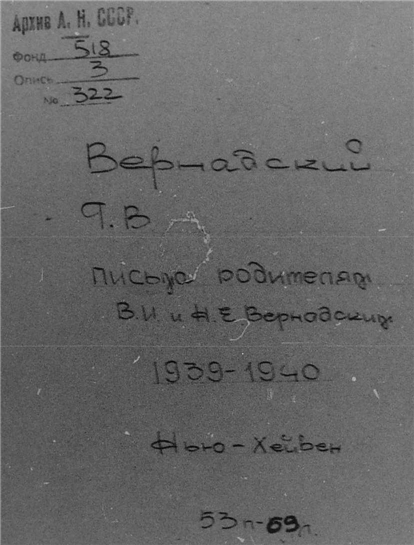 Архив А. Н. СССР.
Фонд 518
Опись 3
№ 322
Вернадский
Г. В
письма родителям
В.И. и Н.Е Вернадским
1939-1940
Нью-Хейвен
53п-69л.